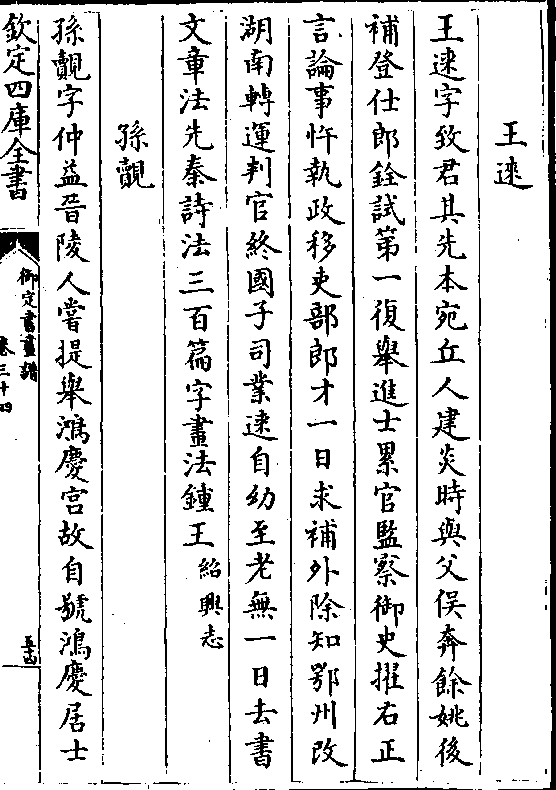 王逨
王逨字致君其先本宛丘人建炎時與父俁奔餘姚後
補登仕郎銓試第一復舉進士累官監察御史擢右正
言論事忤執政移吏部郎才一日求補外除知鄂州改
湖南轉運判官終國子司業逨自幼至老無一日去書
文章法先秦詩法三百篇字畫法鍾王紹興志
孫覿
孫覿字仲益晉陵人嘗提舉鴻慶宮故自號鴻慶居士
欽定四庫全書
御定書畫譜
卷三十四
五十四